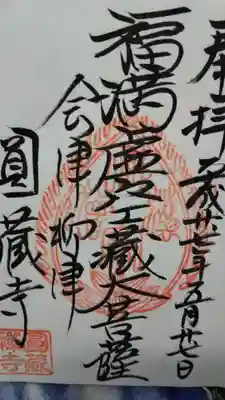 奉拝 平成廿七年五月廿七日
福満虚空蔵大菩薩
会津柳津
圓蔵寺
圓蔵寺